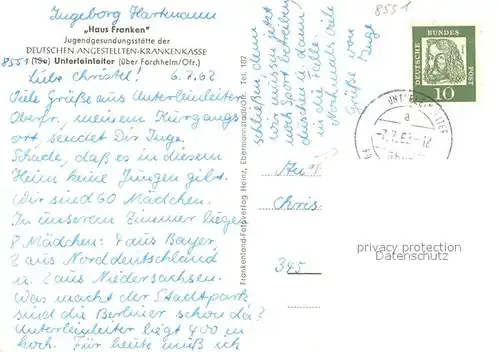 Ingeborg Hartmann
„Haus Franken"
Jugendgesundungsstätte der
DEUTSCHEN-ANGESTELLTEN-KRANKENKASSE
8551 (13a) Unterleinleiter (über Forchheim/Ofr.)
Liebe Christel! 6.7.62
Viele Grüße aus Unterleinleiter
Oberfr., meinem Kurgangs
ort, sendet Dir Inge.
Schade, daß es in diesem
Heim keine Jungen gibt.
Wir sind 60 Mädchen.
In unserem Zimmer liegen
8 Mädchen: 4 aus Bayer,
2 aus Norddeutschland
u. 2 aus Niedersachsen.
Was macht der Stadtpark,
sind die Berliner schon da?
Unterleinleiter liegt 400 m
hoch. Für heute muß ich
schließen, denn
wir müssen jetzt
noch Sport betreiben,
duschen u. dann
in die Falle.
Nochmals viele
Grüße von
Inge
Frankenland-Fotoverlag Heinz, Ebermannstadt/Ofr. Tel. 102
8551
DEUTSCHE
BUNDES
POST
10
a
-7.7.62-12
An
Chris
345
privacy protection
Datenschutz